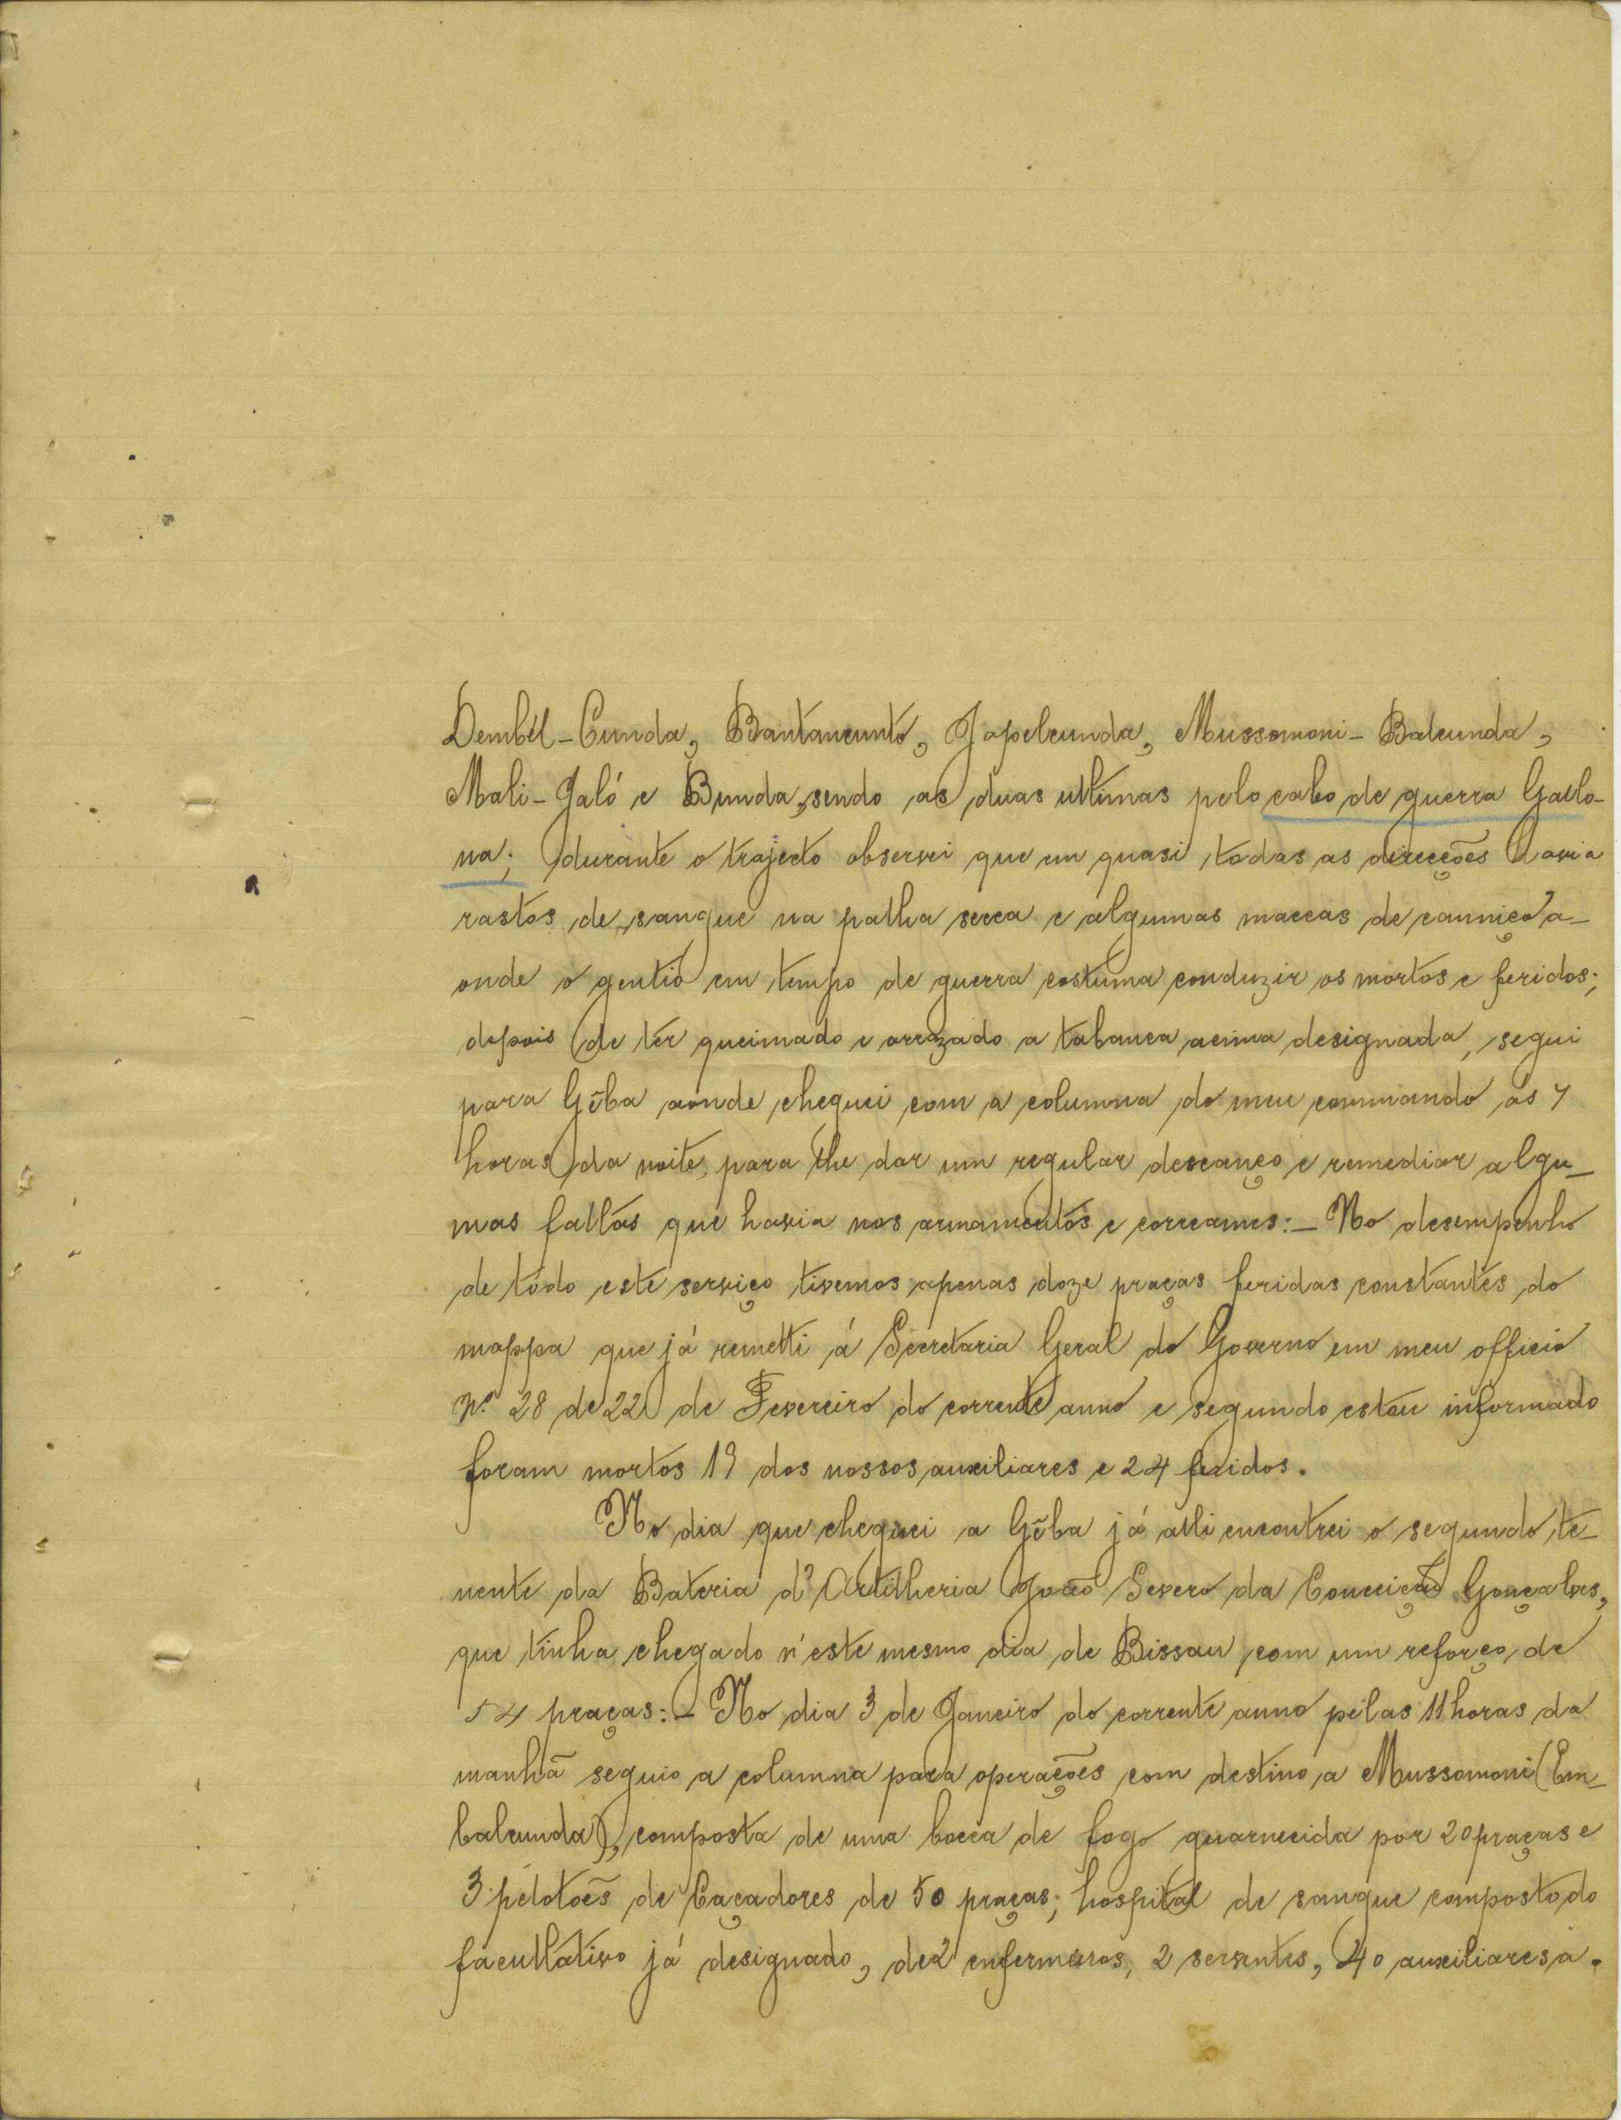 Dembél-Cunda, Bantancunto, Japelcunda, Mussomoni-Balcunda,
Mali-Jaló e Bunda, sendo as duas ultimas pelo cabo de guerra Gallo-
na; durante o trajecto observei que em quasi todas as direcções havia
rastos de sangue na palha secca e algumas maccas de canniço a-
onde o gentio em tempo de guerra costuma conduzir os mortos e feridos;
depois de ter queimado e arrazado a tabanca acima designada, segui
para Gêba aonde cheguei com a columna do meu commando ás 7
horas da noite, para lhe dar um regular descanço e remediar algu-
mas faltas que havia nos armamentos e correames:- No desempenho
de tódo este serviço tivemos apenas doze praças feridas constantes do
mappa que já remetti á Secretaria Geral do Governo em meu officio
Nº 28 de 22 de Fevereiro do corrente anno e segundo estou informado
foram mortos 19 dos nossos auxiliares e 24 feridos.
No dia que cheguei a Gêba já alli encontrei o segundo te-
nente da Bateria d'Artilheria João Severo da Conceição Gonçalves,
que tinha chegado n'este mesmo dia de Bissau com um reforço de
54 praças:- No dia 3 de Janeiro do corrente anno pelas 11 horas da
manhã seguio a columna para operações com destino a Mussomoni (Em-
balcunda), composta de uma bocca de fogo guarnecida por 20 praças e
3 pelotões de Caçadores de 50 praças; hospital de sangue composto do
facultativo já designado, de 2 enfermeiros, 2 serventes, 40 auxiliares a.